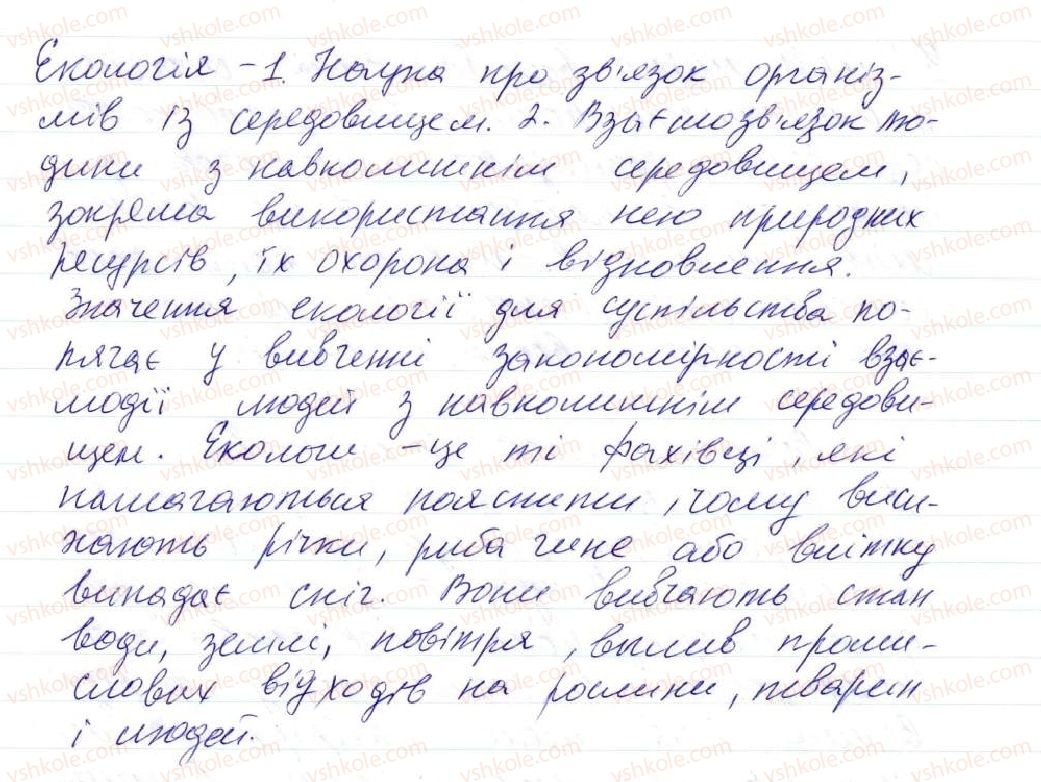 Екологія – 1. Наука про зв'язок організ-
мів із середовищем. 2. Взаємозв'язок лю-
дини з навколишнім середовищем,
зокрема використання нею природних
ресурсів, їх охорона і відновлення.
Значення екології для суспільства по-
лягає у вивченні закономірності взає-
модії людей з навколишнім середови-
щем. Екологи – це ті фахівці, які
намагаються пояснити, чому виси-
хають річки, риба гине або влітку
випадає сніг. Вони вивчають стан
води, землі, повітря, вплив проми-
слових відходів на рослини, тварин
і людей.